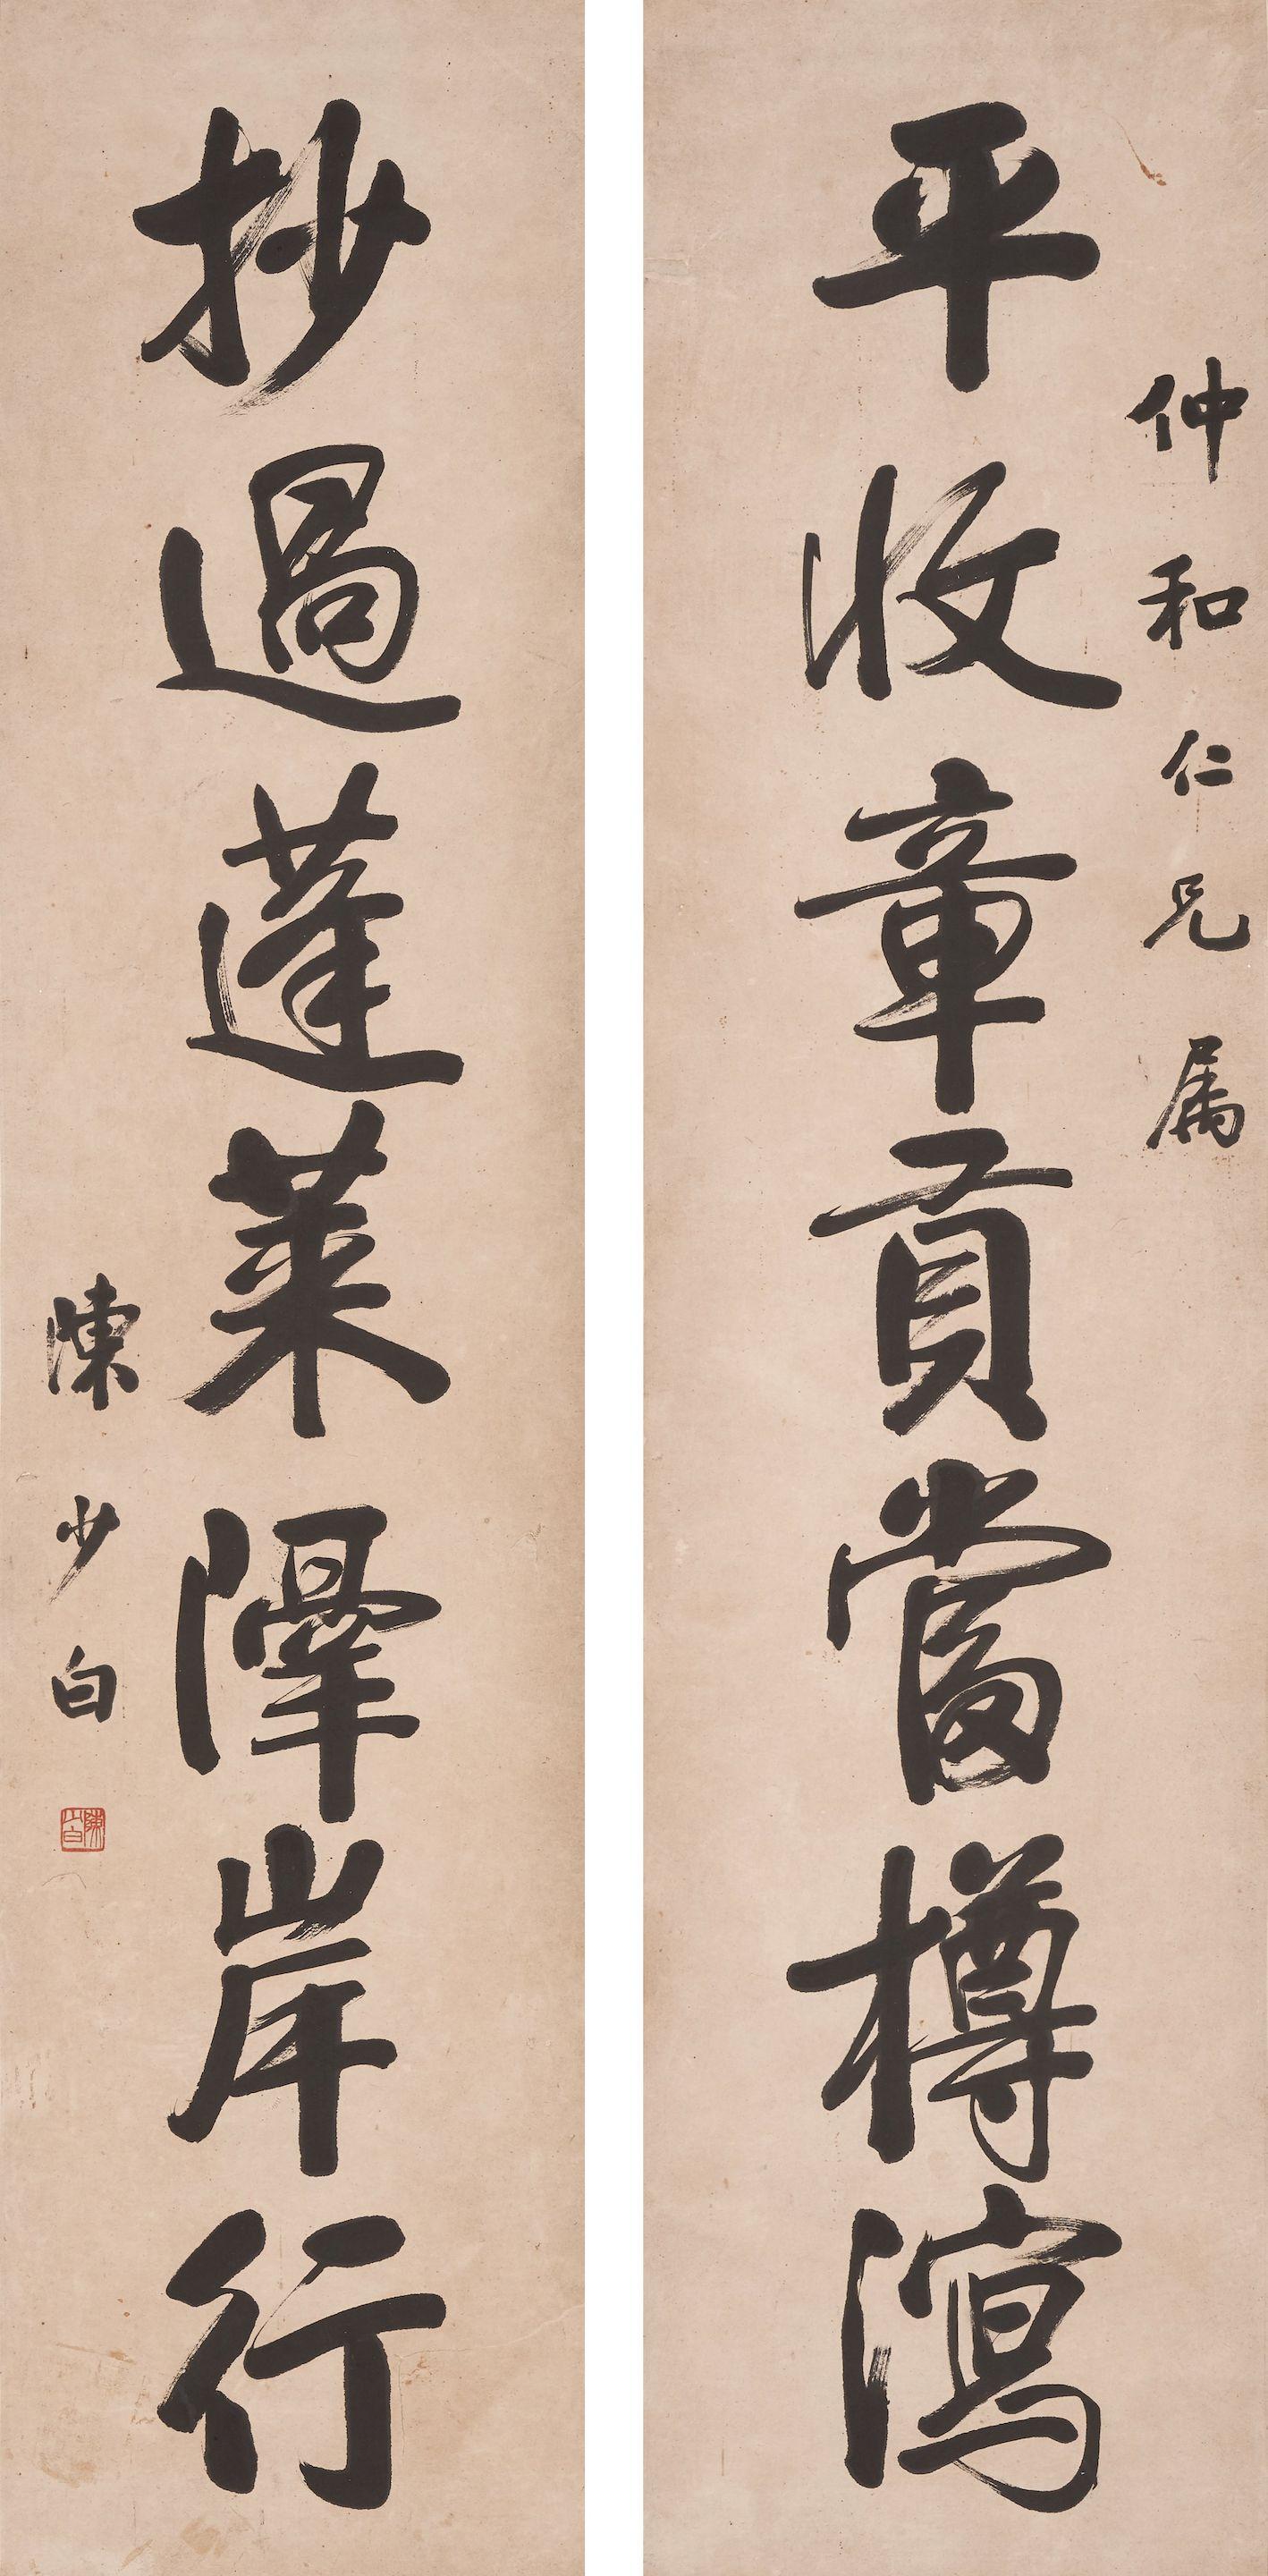 仲和仁兄属
平收章貢當樽瀉
抄過蓬萊岸行
陳少白
陳少白